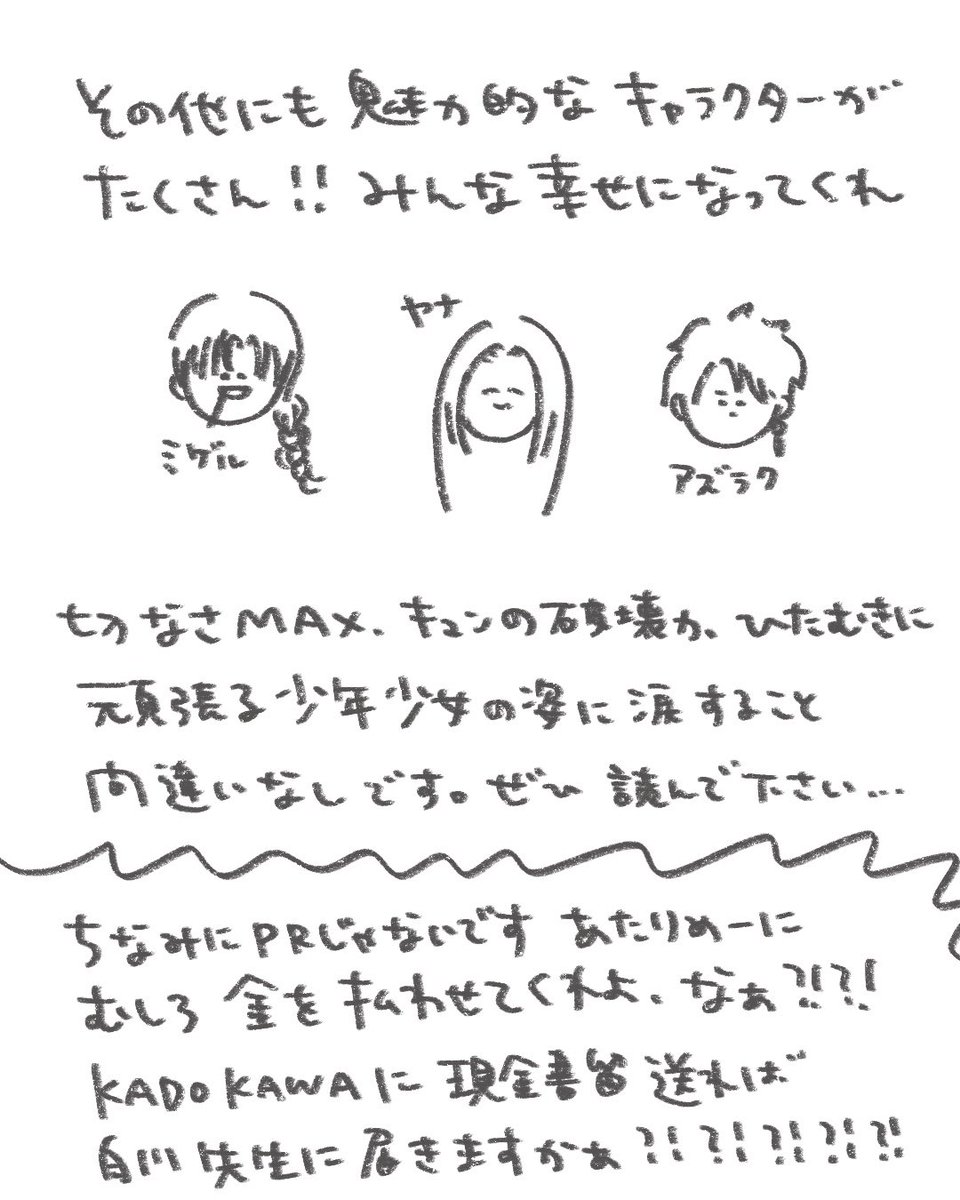 その他にも魅力的なキャラクターが
たくさん!! みんな幸せになってくれ
ヤナ
ミゲル
アズラク
切なさMAX、キュンの破壊力、ひたむきに
頑張る少年少女の姿に涙すること
間違いなしです。ぜひ 読んで下さい...
ちなみにPRじゃないです あたりめーに
むしろ 金を払わせてくれよ、なぁ?!?!
KADOKAWAに 現金書留 送れば
白川先生に届きますかぁ?!?!?!?!?!